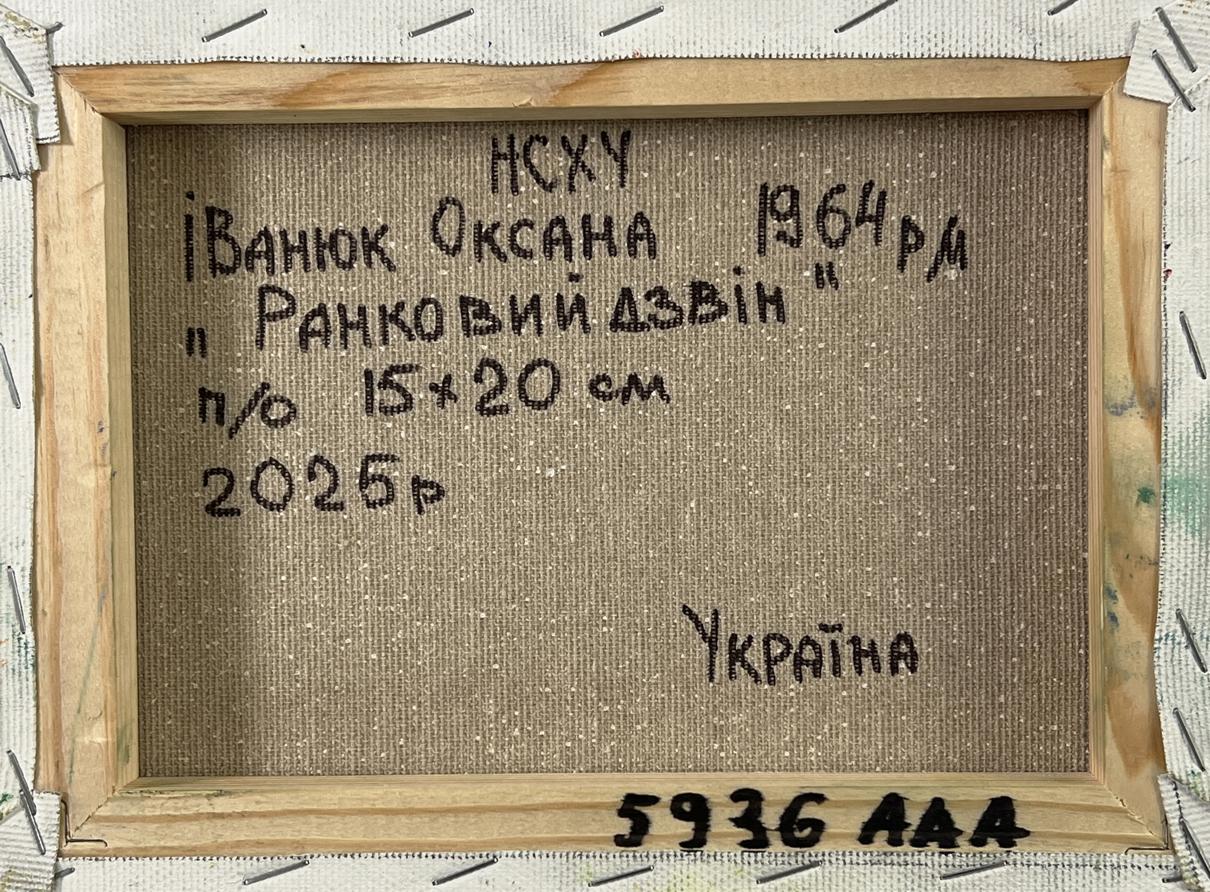 НСХУ
іВанюк Оксана 1964 рм
„ Ранковий дзвін "
п/о 15×20 см
2025р
Україна
5936 ААА